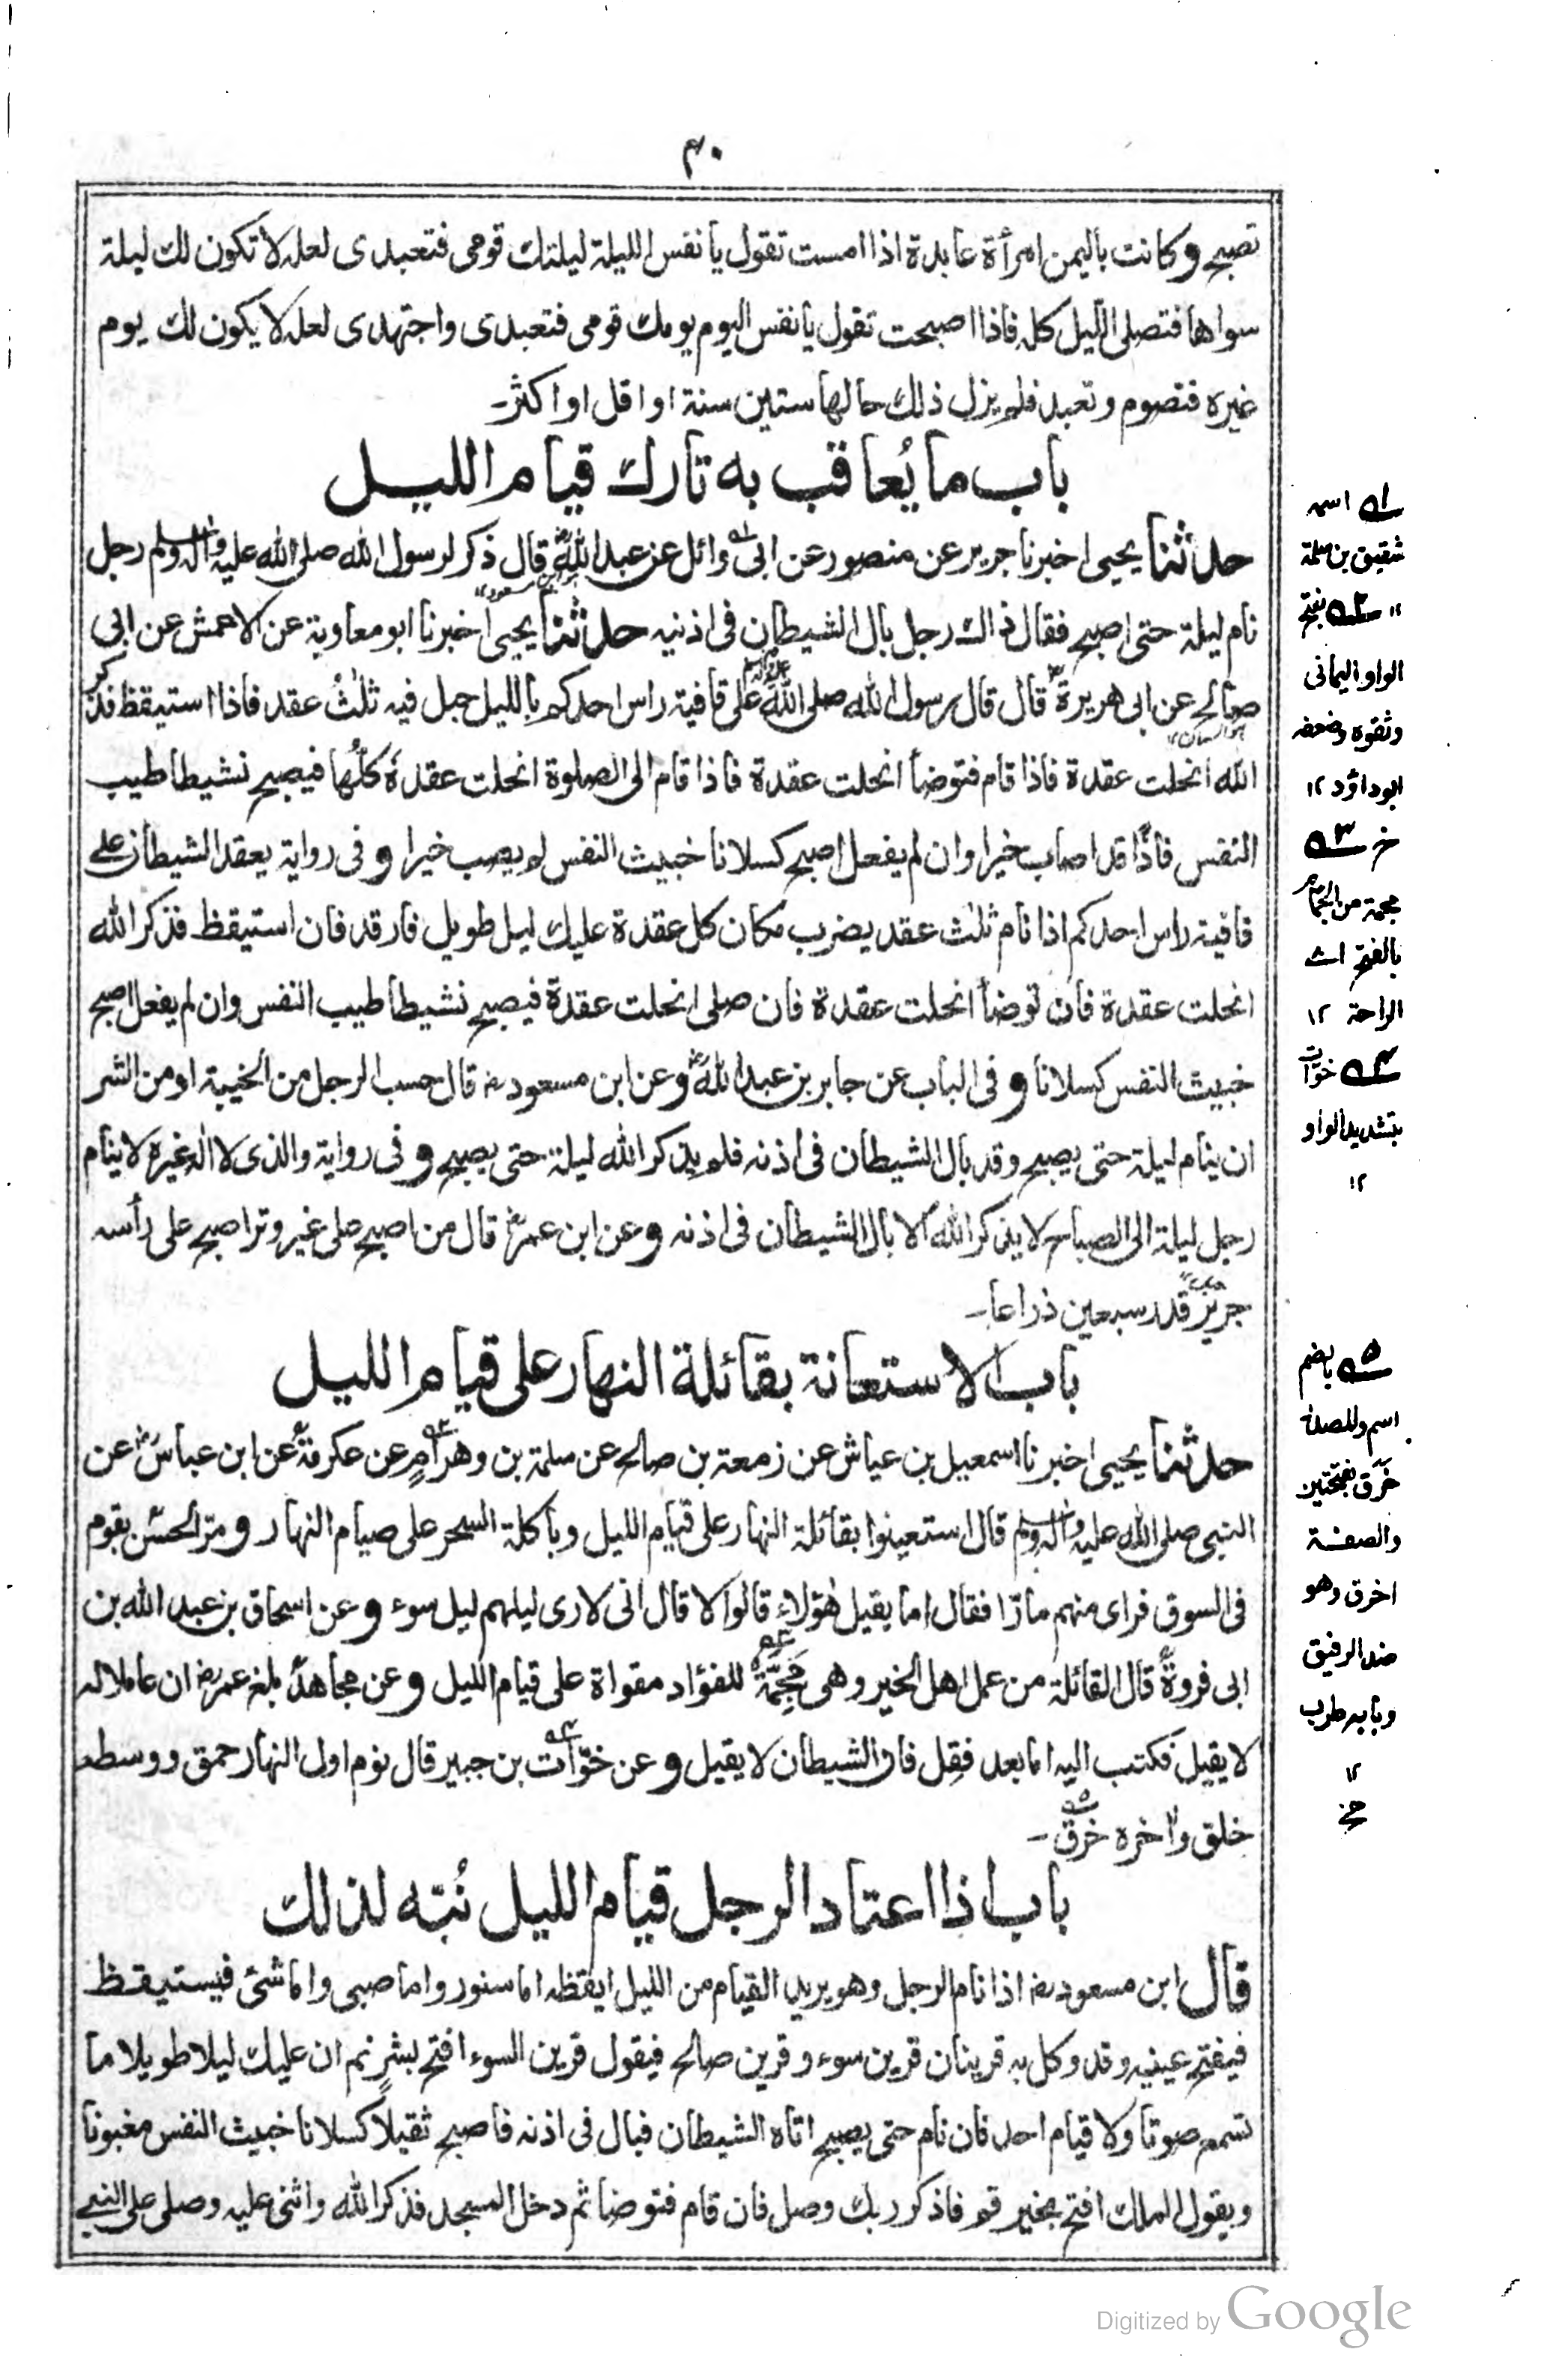 ۴۰
تصبح وكانت باليمن امرأة عابدة اذا امست تقول يا نفس الليلة ليلتك قومى فتعبدى لعله لا تكون لك ليلة
سواها فتصلى الليل كله فاذا اصبحت تقول يا نفس اليوم يومك قومى فتعبدى واجتهدى لعله لا يكون لك يوم
غيره فتصوم وتعبد فلم يزل ذلك حالها ستين سنة او اقل او اكثر۔
باب ما يُعاقب به تارك قيام الليل
حدثنا يحيى اخبرنا جرير عن منصور عن ابى وائل عن عبد الله قال ذكر لرسول الله صلى الله عليه واله وسلم رجل
نام ليلة حتى اصبح فقال ذاك رجل بال الشيطان فى اذنيه حدثنا يحيى اخبرنا ابو معاوية عن الاعمش عن ابى
صالح عن ابى هريرة قال قال رسول الله صلى الله على قافية راس احدكم بالليل حبل فيه ثلٰثُ عقد فاذا استيقظ فذكر
الله انحلت عقدة فاذا قام فتوضأ انحلت عقدة فاذا قام الى الصلوة انحلت عقدهٗ كلُّها فيصبح نشيطا طيب
النفس فاذًا قد اصاب خيرا وان لم يفعل اصبح كسلانا خبيث النفس لم يصب خيرا و فى رواية يعقد الشيطان على
قافية راس احدكم اذا نام ثلٰث عقد يضرب مكان كل عقدة عليك ليل طويل فارقد فان استيقظ فذكر الله
انحلت عقدة فان توضأ انحلت عقدة فان صلى انحلت عقدة فيصبح نشيطا طيب النفس وان لم يفعل اصبح
خبيث النفس كسلانا و فى الباب عن جابر بن عبد الله و عن ابن مسعود رض قال حسب الرجل من الخيبة او من الشر
ان ينام ليلة حتى يصبح وقد بال الشيطان فى اذنه فلم يذكر الله ليلة حتى يصبح و فى رواية والذى لا اله غيره لا ينام
رجل ليلة الى الصباح لا يذكر الله الا بال الشيطان فى اذنه و عن ابن عمر قال من اصبح على غير وتر اصبح على رأسه
جرير قدر سبعين ذراعا۔
باب الاستعانة بقائلة النهار على قيام الليل
حدثنا يحيى اخبرنا اسمعيل بن عياش عن زمعة بن صالح عن سلمة بن وهرام عن عكرمة عن ابن عباس عن
النبى صلى الله عليه واله وسلم قال استعينوا بقائلة النهار على قيام الليل وباكلة السحر على صيام النهار و مر الحسن بقوم
فى السوق فراى منهم ما رأى فقال اما يقيل هٰؤلاء قالوا لا قال انى لارى ليلهم ليل سوء و عن اسحاق بن عبد الله بن
ابى فروة قال القائلة من عمل اهل الخير وهى مَجِمَّة للفؤاد مقواة على قيام الليل و عن مجاهد بلغ عمر رض ان عاملا له
لا يقيل فكتب اليه اما بعد فقِل فان الشيطان لا يقيل و عن خوّات بن جبير قال نوم اول النهار حمق ووسطه
خلق واٰخره خرق۔
باب اذا اعتاد الرجل قيام الليل نُبّه لذلك
قال ابن مسعود رض اذا نام الرجل وهو يريد القيام من الليل ايقظه اما سنور واما صبى واما شئ فيستيقظ
فيفتح عينيه وقد وكل به قرينان قرين سوء وقرين صالح فيقول قرين السوء افتح بشرٍ نم ان عليك ليلا طويلا ما
تسمع صوتا ولا قيام احد فان نام حتى يصبح اتاه الشيطان فبال فى اذنه فاصبح ثقيلًا كسلانا خبيث النفس مغبونا
ويقول الملك افتح بخير قم فاذكر ربك وصل فان قام فتوضأ ثم دخل المسجد فذكر الله واثنى عليه وصلى على النبى
۱ اسمه
شقيق بن سلمة
۱۲ ۲ بفتح
الواو اليمانى
وثقوه وضعفه
ابو داؤد ۱۲
خز ۳
مجمة من الجمام
بالفتح اى
الراحة ۱۲
۴ خوّات
بتشديد الواو
۱۲
۵ بالضم
اسم وللمصدر
خَرَق بفتحتين
والصفة
اخرق وهو
ضد الرفيق
وبابه طرب
۱۲
Digitized by Google